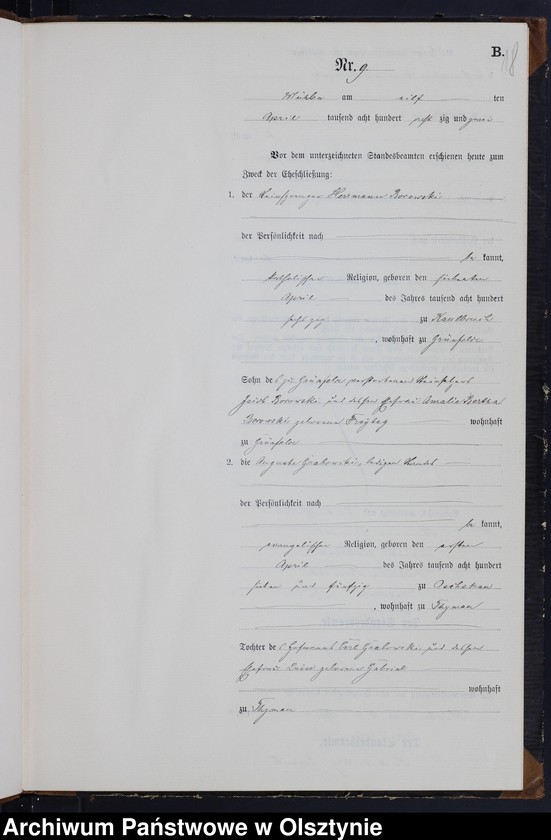 B.
18
Nr. 9
Mühlen am elf ten
April tausend acht hundert zig und
Vor dem unterzeichneten Standesbeamten erschienen heute zum
Zweck der Eheschließung:
1. der Herrmann Borowski
der Persönlichkeit nach
be kannt,
katholischer Religion, geboren den siebenten
April des Jahres tausend acht hundert
sechszig zu
, wohnhaft zu Grünfelde
Sohn des zu Grünfelde verstorbenen
Jacob Borowski und dessen Ehefrau Amalie Bertha
Borowski geborene wohnhaft
zu Grünfelde
2. die Auguste Grabowski, ledigen Standes
der Persönlichkeit nach
be kannt,
evangelischer Religion, geboren den ersten
April des Jahres tausend acht hundert
sieben und fünfzig zu
, wohnhaft zu Thymau
Tochter des Carl Grabowski und dessen
Ehefrau geborene Gabriel
wohnhaft
zu Thymau
Archiwum Państwowe w Olsztynie